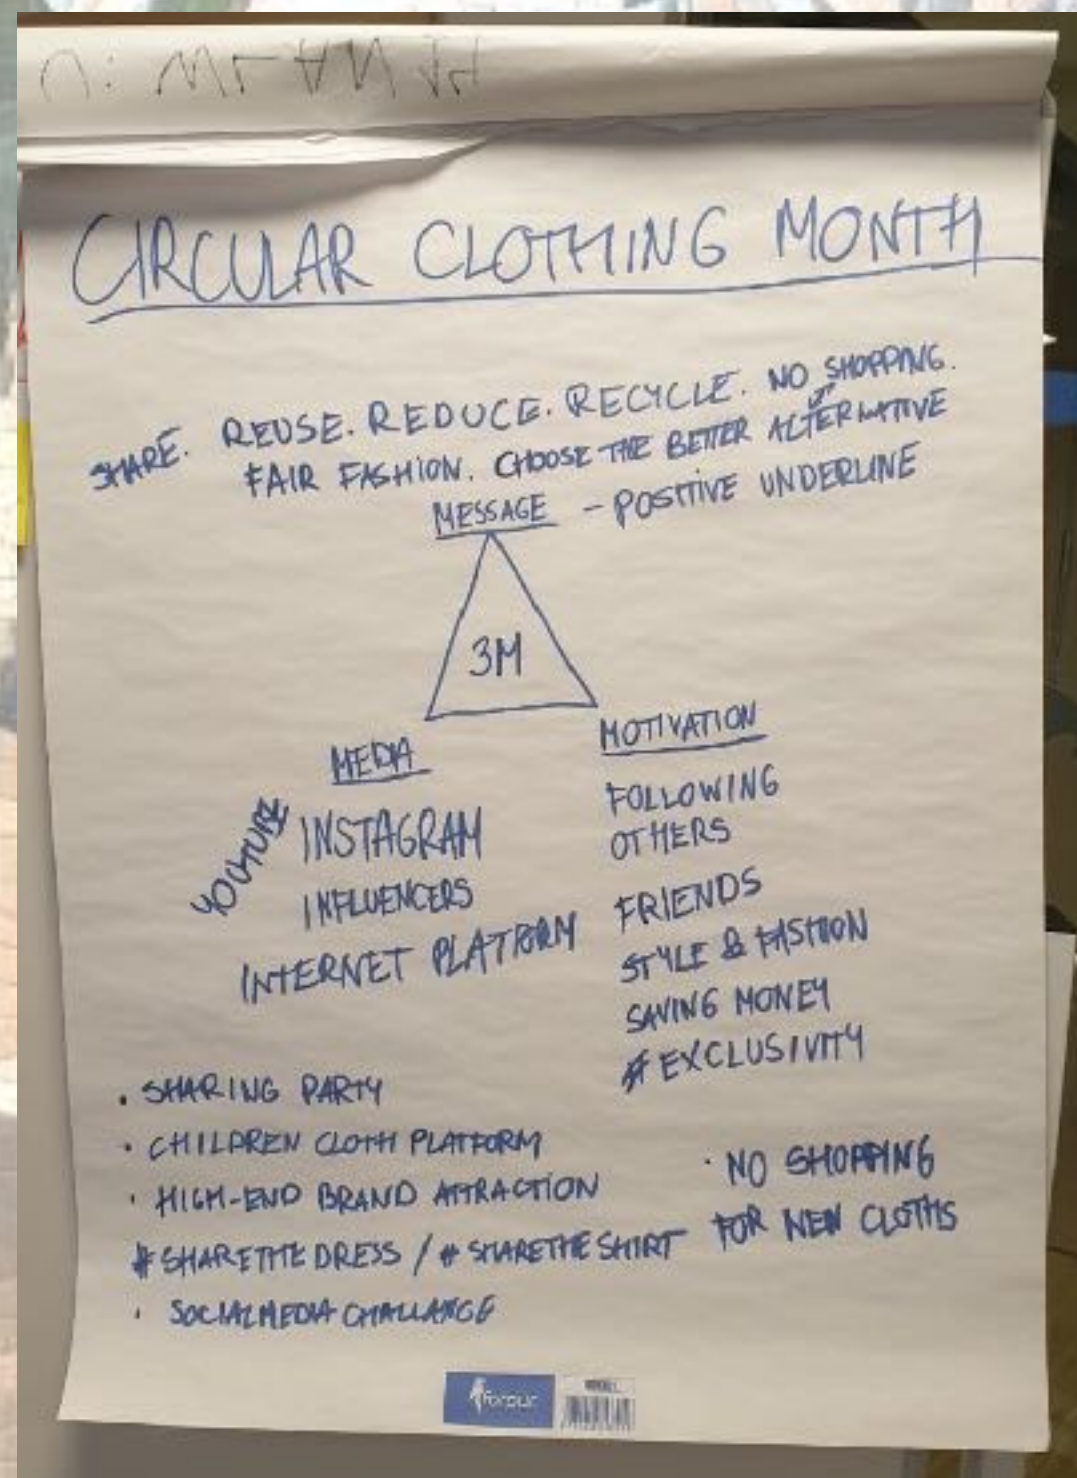 CIRCULAR CLOTHING MONTH
SHARE. REUSE. REDUCE. RECYCLE. NO SHOPPING.
FAIR FASHION. CHOOSE THE BETTER ALTERNATIVE
MESSAGE - POSITIVE UNDERLINE
3M
MEDIA
YOUTUBE
INSTAGRAM
INFLUENCERS
INTERNET PLATFORM
MOTIVATION
FOLLOWING
OTHERS
FRIENDS
STYLE & FASHION
SAVING MONEY
# EXCLUSIVITY
• SHARING PARTY
• CHILDREN CLOTH PLATFORM
• HIGH-END BRAND ATTRACTION
# SHARETHEDRESS / # SHARETHESHIRT
• SOCIALMEDIA CHALLANGE
• NO SHOPPING
FOR NEW CLOTHS
forpus